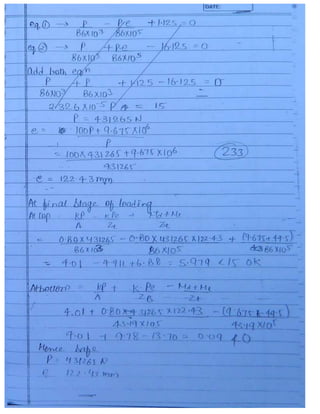 DATE:
eq ① → P/86x10³ - Pe/86x10⁵ + 1.125 = 0
eq ② → P/86x10³ + Pe/86x10⁵ - 16.125 = 0
Add both eqn
P/86x10³ + P/86x10³ + 1.125 - 16.125 = 0
2.32 x 10⁻⁵ P = 15
P = 431265 N
e = 100P + 9.675x10⁶ / P
= 100x431265 + 9.675x10⁶ / 431265
233
e = 122.43 mm
At final stage of loading
At top KP/A - KPe/Zt + Md+Ml/Zt
= 0.80x431265/86x10³ - 0.80x431265x122.43/86x10⁵ + (9.675+44.5)/86x10⁵
= 4.01 - 4.911 + 6.88 = 5.979 < 15 OK
At bottom = KP/A + K Pe/ZB - Md+Ml/Zt
4.01 + 0.80x431265x122.43/43.19x10⁵ - (9.675+44.5)/43.19x10⁵
4.01 + 9.78 - 13.70 = 0.09
Hence safe
P = 431265 N
e 122.43 mm